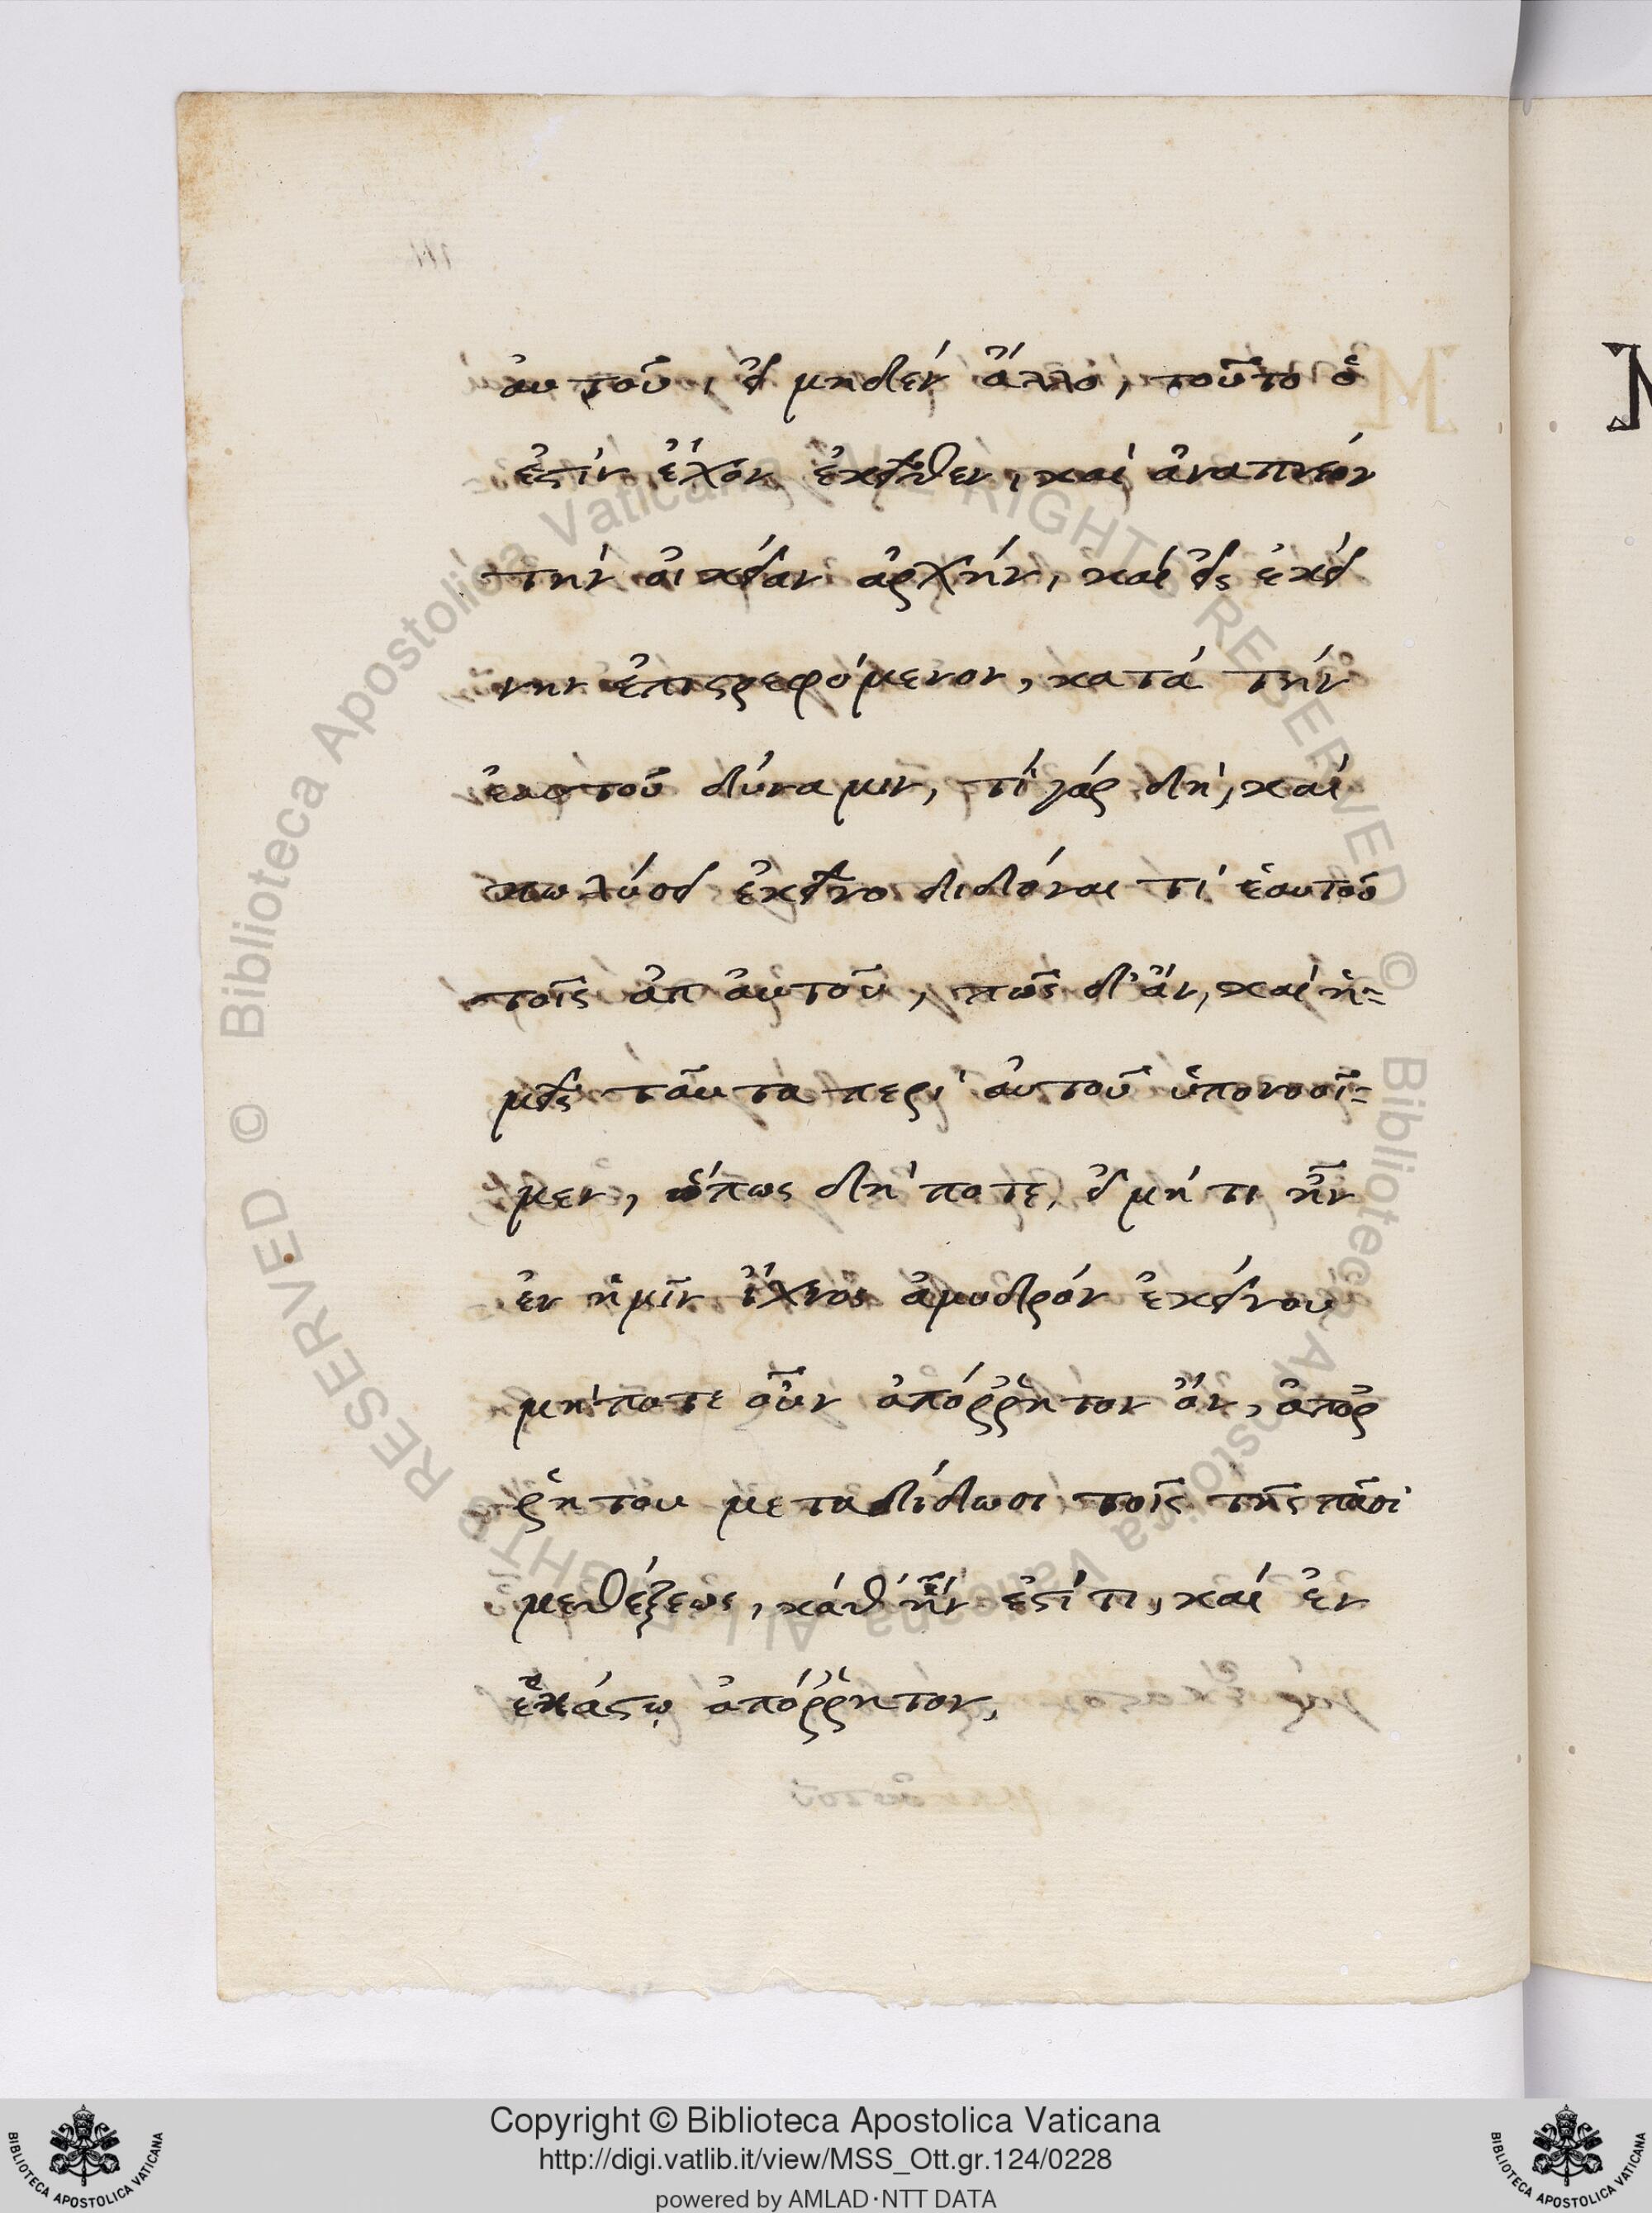 αὐτοῦ, εἰ μηδέν ἄλλο, τοῦτο ὅ
ἐστίν ἔχον ἐκεῖθεν, καί ἀναπνέον
τήν οἰκείαν ἀρχήν, καί εἰς ἐκεί
νην ἐπιστρεφόμενον, κατά τήν
ἑαυτοῦ δύναμιν, τί γάρ δή, καί
κωλύσει ἐκεῖνο διδόναι τί ἑαυτοῦ
τοῖς ἀπ αὐτοῦ, πῶς δ' ἄν, καί ἡ-
μεῖς ταῦτα περί αὐτοῦ ὑπονοοῖ-
μεν, ὅπως δή ποτε, εἰ μή τι ἦν
ἐν ἡμῖν ἴχνος ἀμυδρόν ἐκείνου
μήποτε οὖν ἀπόῤῥητον ὄν, ἀποῤ
ῥήτου μεταδίδωσι τοῖς τῆς πᾶσι
μεθέξεως, κάθ' ἥν ἐστί τι, καί ἐν
ἑκάστῳ ἀπόῤῥητον,
Copyright © Biblioteca Apostolica Vaticana
http://digi.vatlib.it/view/MSS_Ott.gr.124/0228
powered by AMLAD·NTT DATA
BIBLIOTECA APOSTOLICA VATICANA
BIBLIOTECA APOSTOLICA VATICANA
© Biblioteca Apostolica Vaticana ALL RIGHTS RESERVED
© Biblioteca Apostolica Vaticana ALL RIGHTS RESERVED